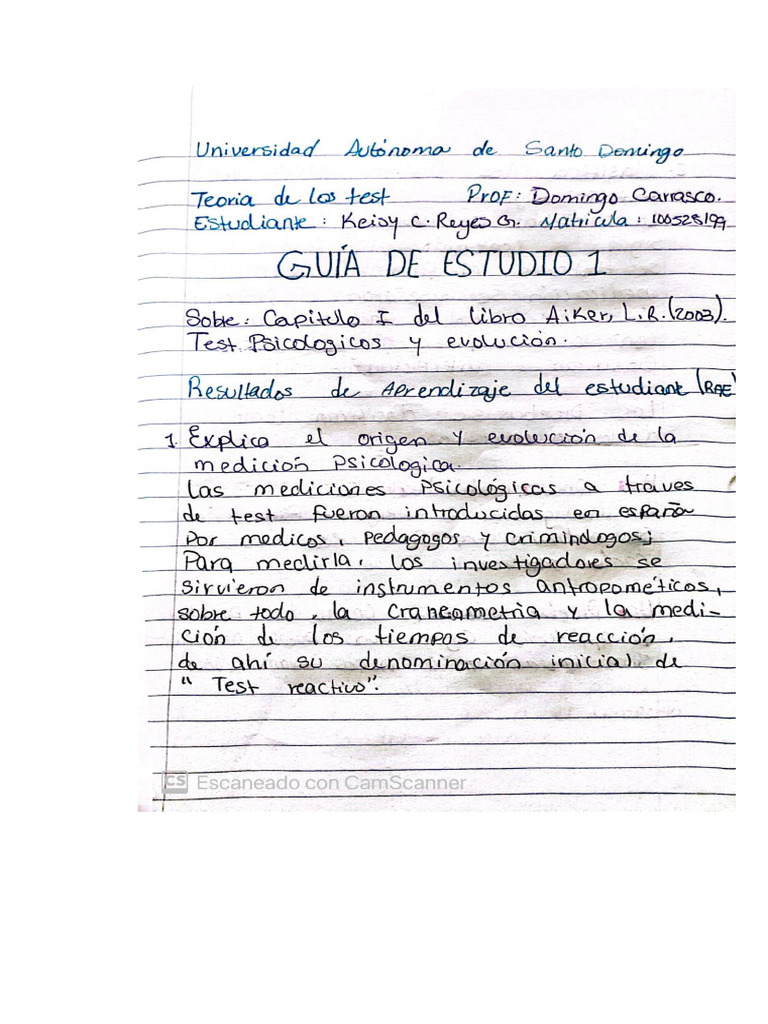 Universidad Autónoma de Santo Domingo
Teoria de los test Prof: Domingo Carrasco.
Estudiante: Keisy C. Reyes G. Matricula: 100528199
GUÍA DE ESTUDIO 1
Sobre: Capitulo I del libro Aiker, L.R. (2003).
Test Psicologicos y evolución.
Resultados de Aprendizaje del estudiante (RAE)
1. Explica el origen y evolución de la
medición Psicologica.
Las mediciones Psicológicas a traves
de test fueron introducidas en españa
Por medicos, Pedagogos y criminologos;
Para medirla, los investigadores se
sirvieron de instrumentos antropométicos,
sobre todo, la Craneometria y la medi-
ción de los tiempos de reacción,
de ahí su denominación inicial de
" Test reactivo".
CS Escaneado con CamScanner